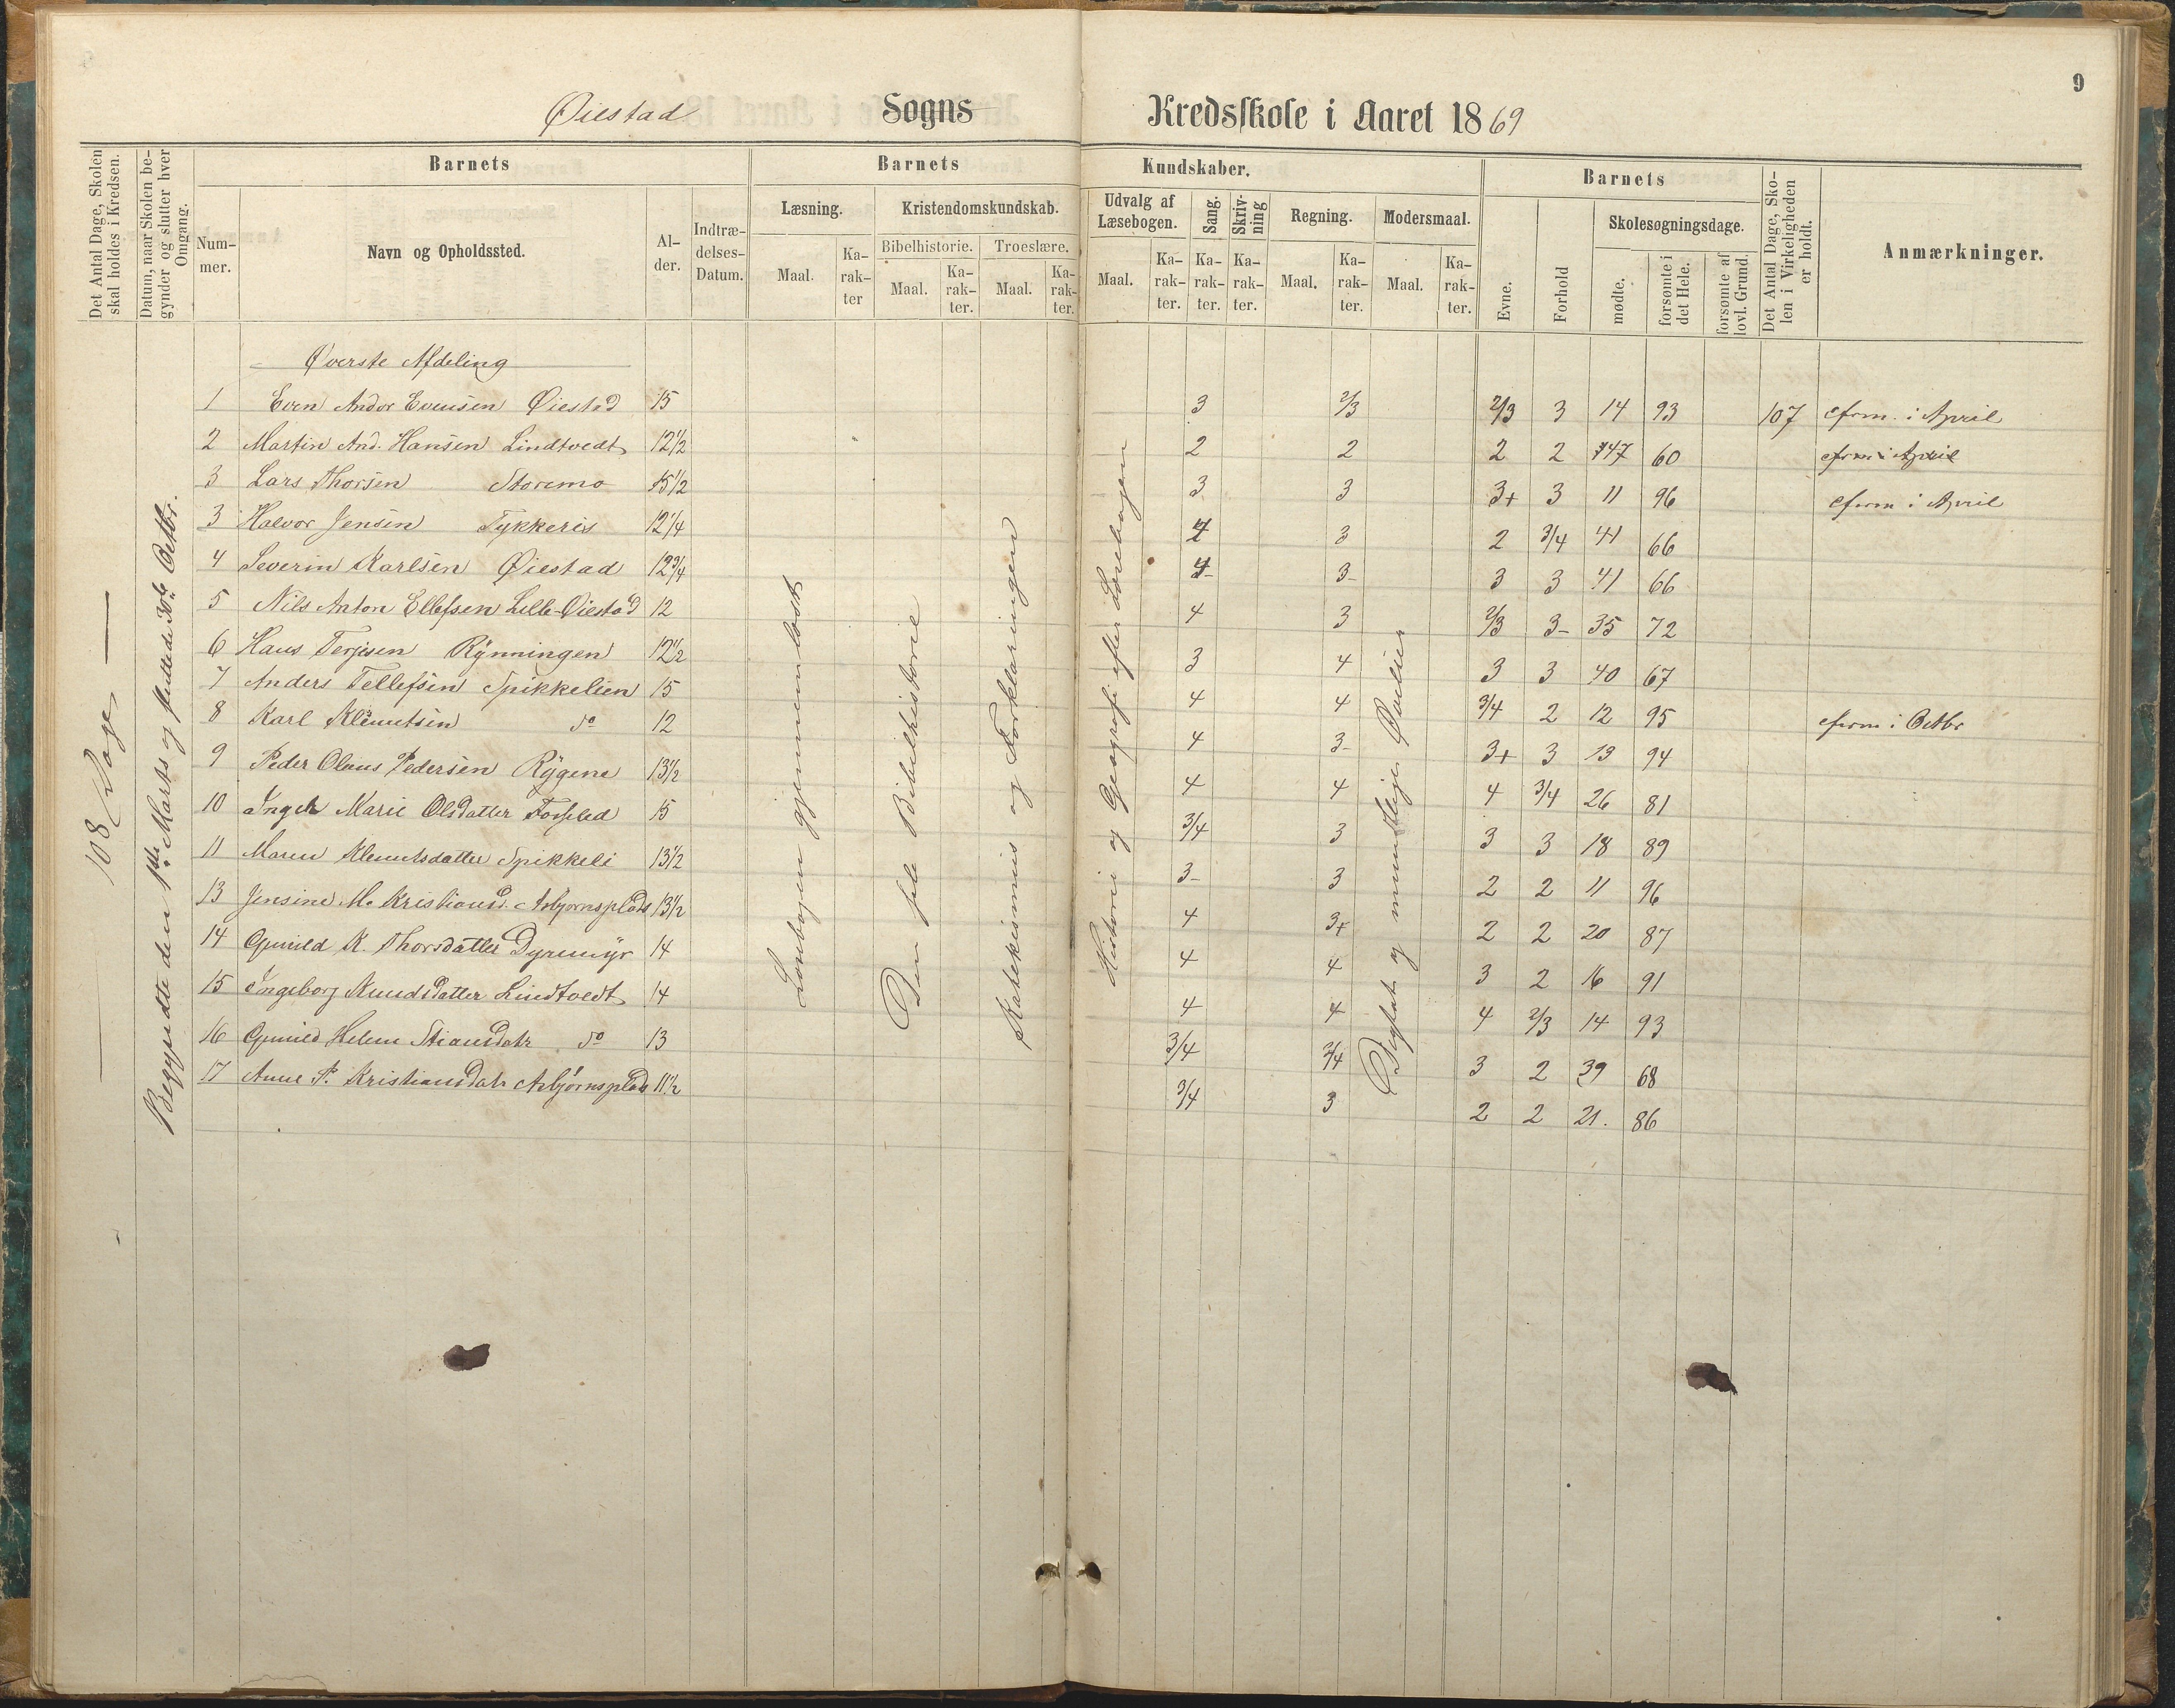 9
Øiestad Sogns Kredsskole i Aaret 1869
Det Antal Dage, Skolen skal holdes i Kredsen.
Datum, naar Skolen begynder og slutter hver Omgang.
Barnets
Num-mer.
Navn og Opholdssted.
Al-der.
Indtræ-delses-Datum.
Barnets Kundskaber.
Læsning.
Maal.
Ka-rak-ter
Kristendomskundskab.
Bibelhistorie.
Maal.
Ka-rak-ter.
Troeslære.
Maal.
Ka-rak-ter.
Udvalg af Læsebogen.
Maal.
Ka-rak-ter.
Sang.
Ka-rak-ter.
Skriv-ning
Ka-rak-ter.
Regning.
Maal.
Ka-rak-ter.
Modersmaal.
Maal.
Ka-rak-ter.
Barnets
Evne.
Forhold
Skolesøgningsdage.
mødte.
forsømte i det Hele.
forsømte af lovl. Grund.
Det Antal Dage, Sko-len i Virkeligheden er holdt.
Anmærkninger.
108 Dage
Begyndte den 1ste Marts og sluttede 30te Octbr.
Læsebogen gjennemlæst
Den hele Bibelhistorie
Katekismus og Forklaringen
Historie og Geografi efter Læsebogen
Digtat og mundtlige Øvelser
Øverste Afdeling
1 Even Andor Evensen Øiestad 15 3 2/3 2/3 3 14 93 107 cfrm. i April
2 Martin And. Hansen Lindtvedt 12 1/2 2 2 2 2 47 60 cfrm i April
3 Lars Thorsen Storemo 15 1/2 3 3 3+ 3 11 96 cfrm i April
3 Halvor Jensen Tykkeris 12 1/4 4 3 2 3/4 41 66
4 Severin Karlsen Øiestad 12 3/4 4- 3- 3 3 41 66
5 Nils Anton Ellefsen Lille-Øiestad 12 4 3 2/3 3- 35 72
6 Hans Terjesen Rynningen 12 1/2 3 4 3 3 40 67
7 Anders Tellefsen Spikkelien 15 4 4 3/4 2 12 95 cfrm i Octbr
8 Karl Klemetsen do 12 4 3- 3+ 3 13 94
9 Peder Olaus Pedersen Rygene 13 1/2 4 4 4 3/4 26 81
10 Inger Marie Olsdatter 15 3/4 3 3 3 18 89
11 Maren Klemetsdatter Spikkeli 13 1/2 3- 3 2 2 11 96
13 Jensine M. Kristiansd. Asbjørnsplads 13 1/2 4 3+ 2 2 20 87
14 Gunild K. Thorsdatter Dyremyr 14 4 4 3 2 16 91
15 Ingeborg Knudsdatter Lindtvedt 14 4 4 4 2/3 14 93
16 Gunild Helene Stiansdatr do 13 3/4 3/4 3 2 39 68
17 Anne P. Kristiansdatr Asbjørnsplads 11 1/2 3/4 3 2 2 21. 86